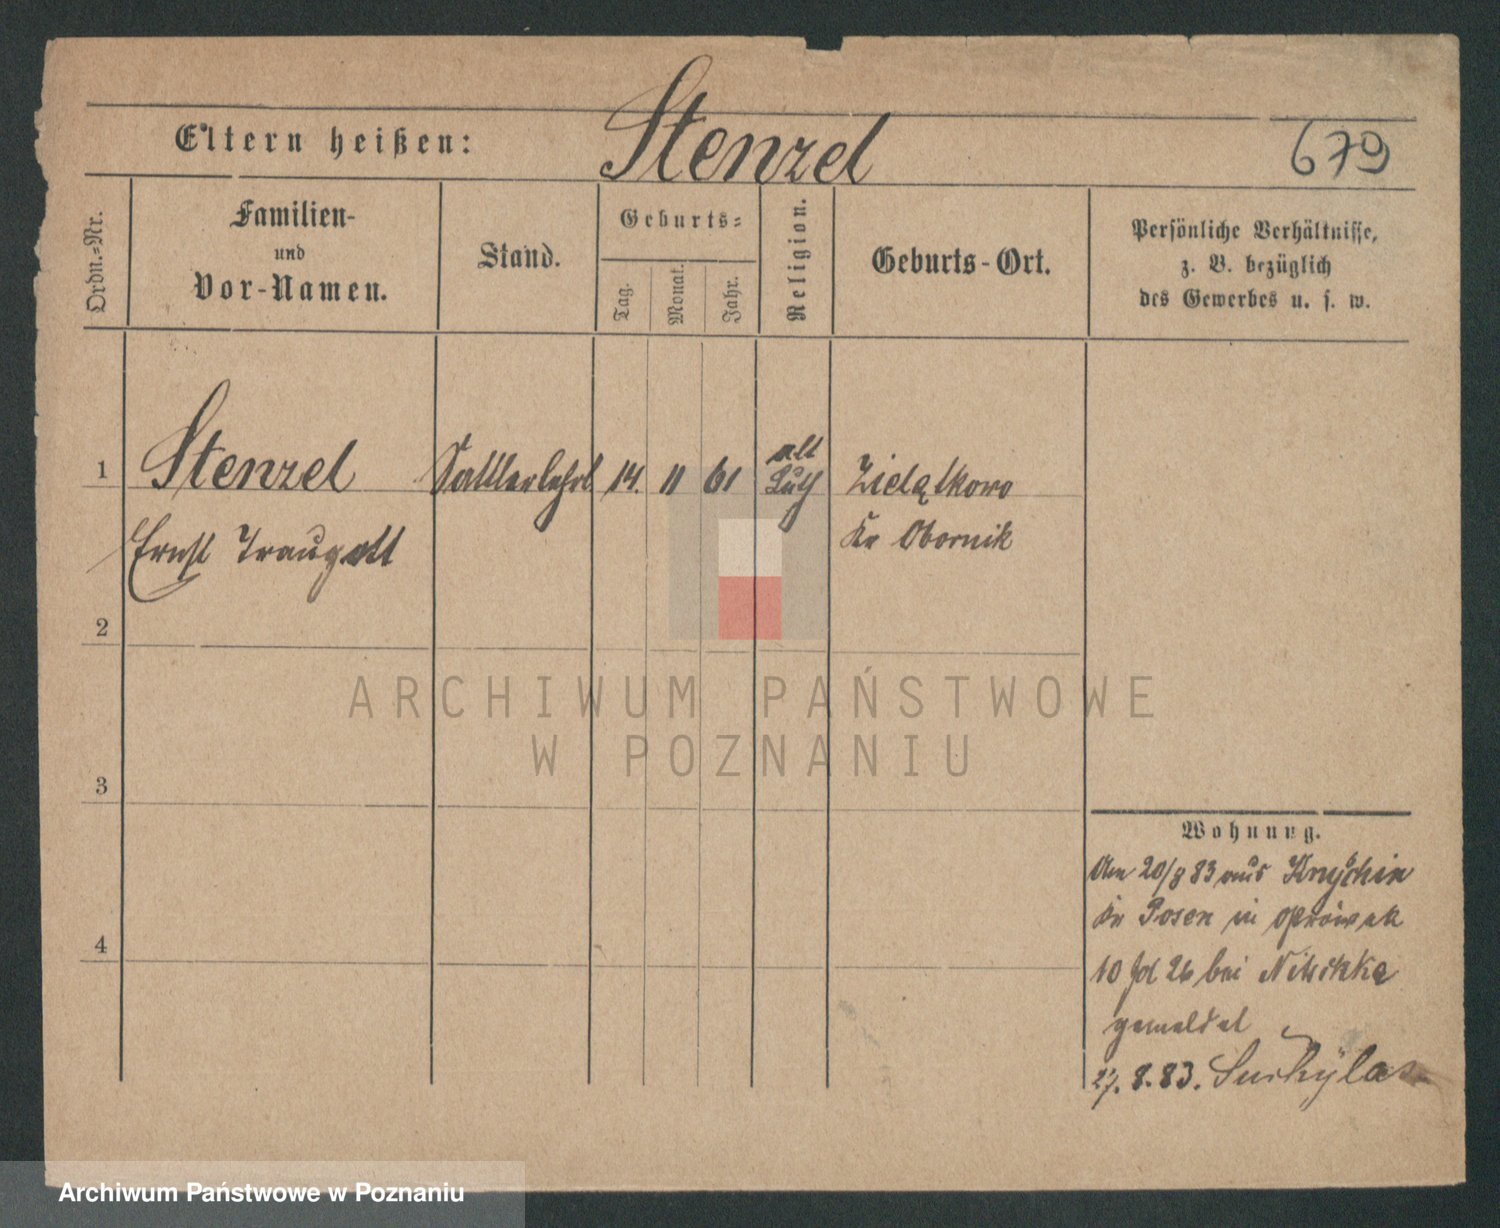 Eltern heißen: Stenzel 679
Ordn.-Nr.
Familien-
und
Vor-Namen.
Stand.
Geburts-
Tag. Monat. Jahr.
Religion.
Geburts-Ort.
Persönliche Verhältnisse,
z. B. bezüglich
des Gewerbes u. s. w.
1 Stenzel Sattlerlehrl 14. 11 61 alt Luth Zielątkowo
Ernst Traugott Kr Obornik
2
3
4
ARCHIWUM PAŃSTWOWE
W POZNANIU
Wohnung.
Am 20/8 83 aus
Kr Posen in
10 bei
gemeldet
27. 8. 83.
Archiwum Państwowe w Poznaniu